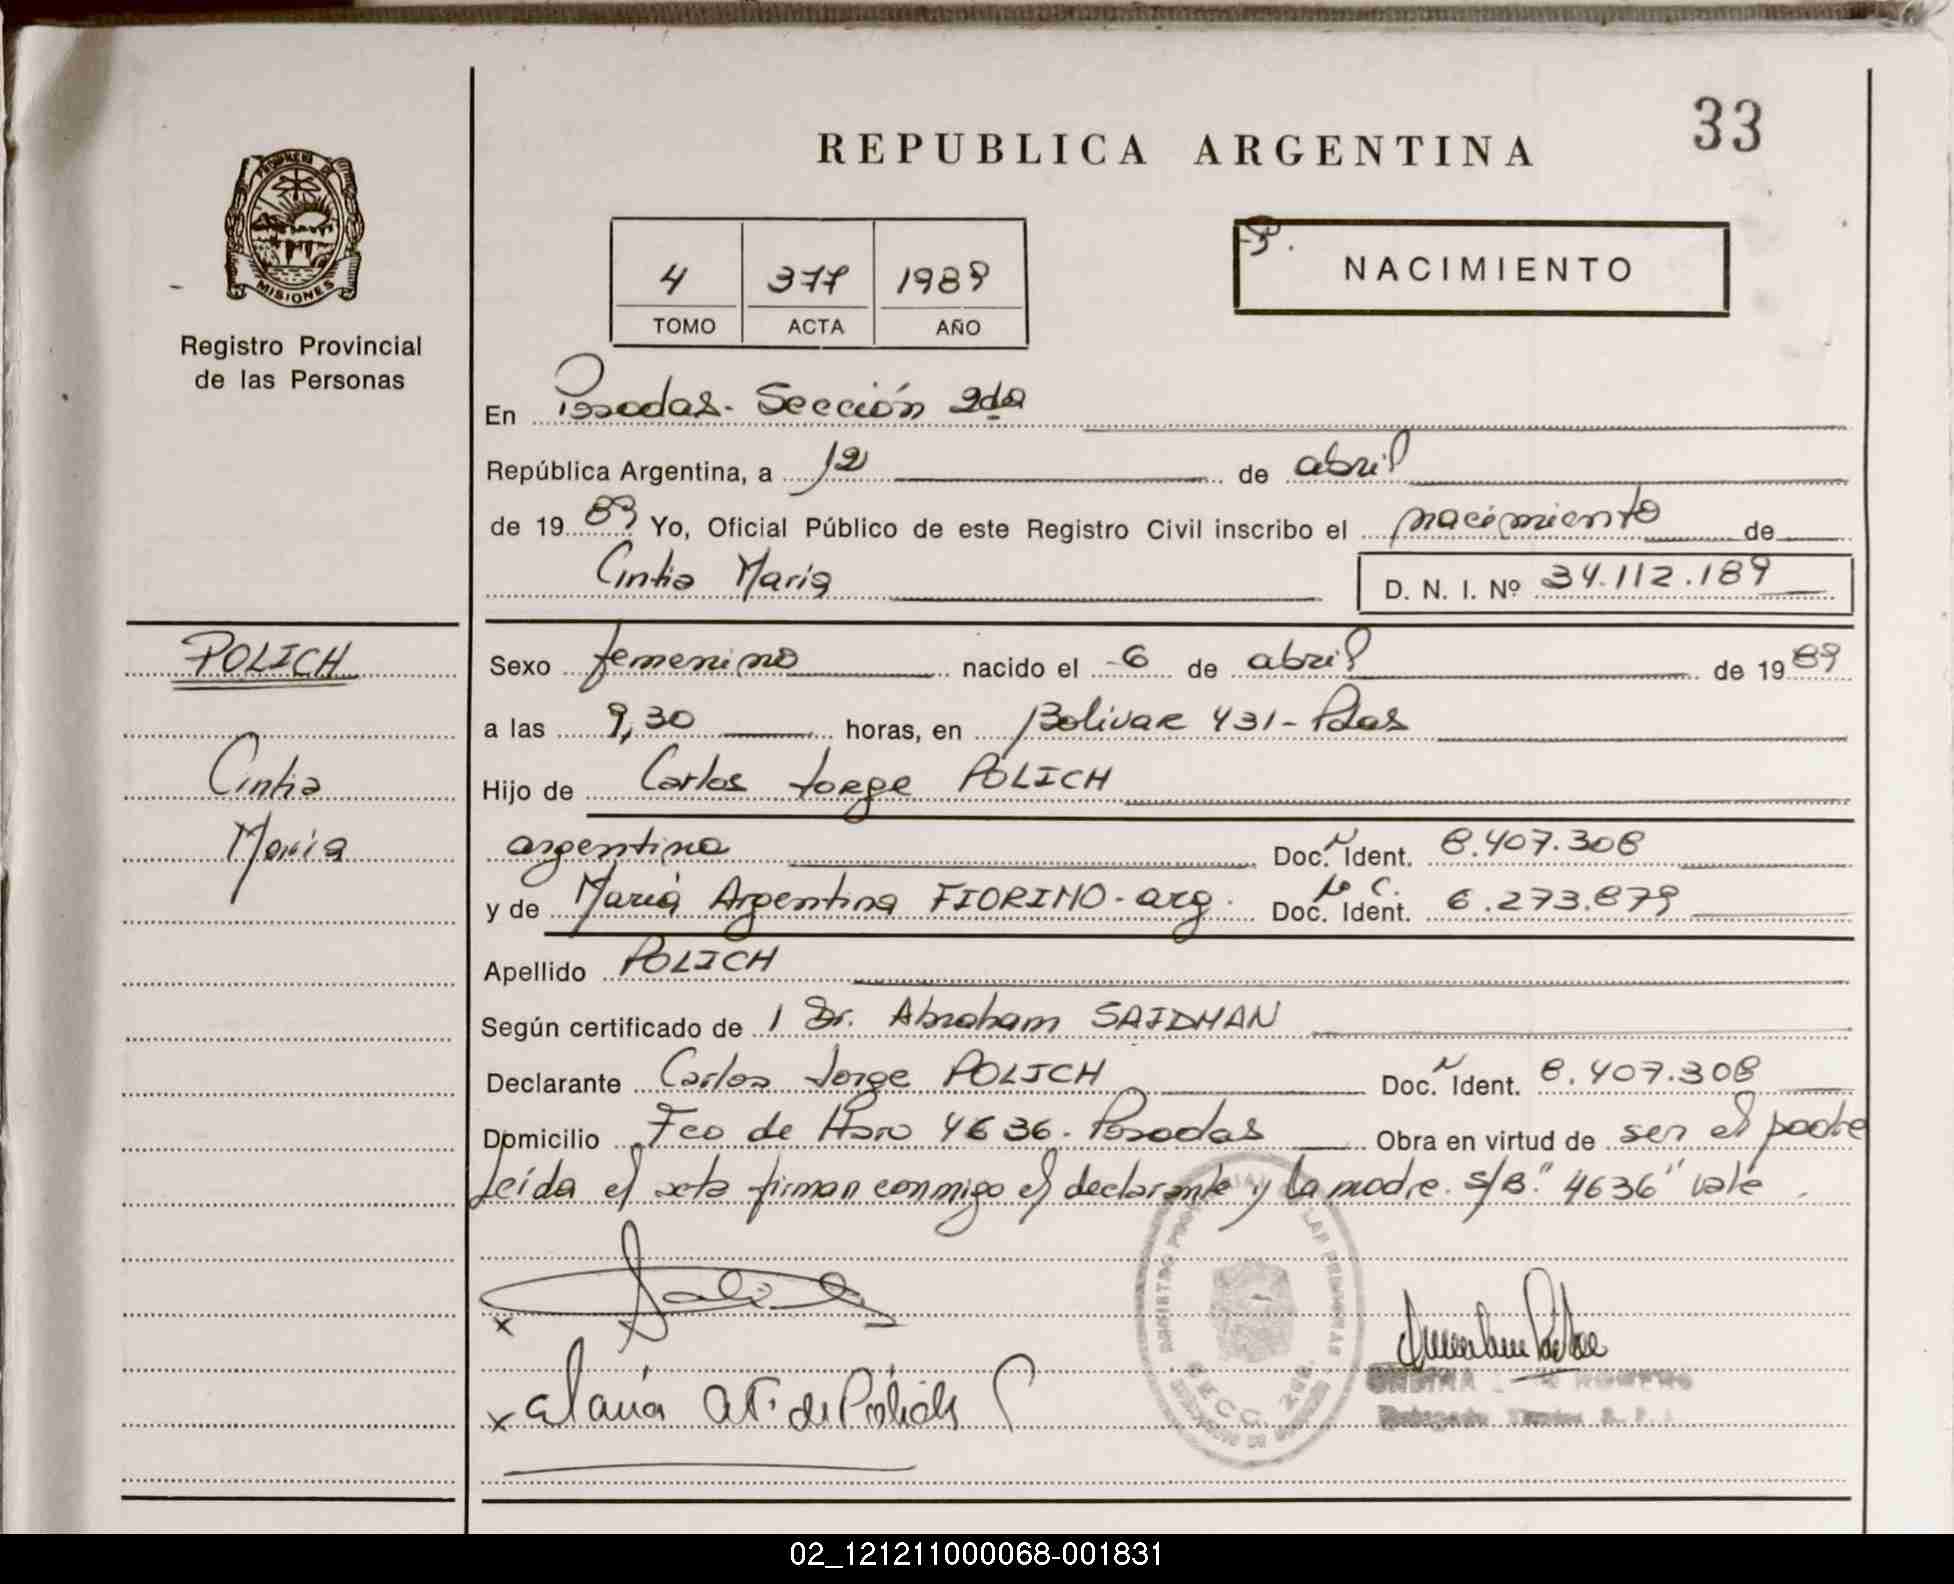 33
REPUBLICA ARGENTINA
PROVINCIA DE
MISIONES
Registro Provincial
de las Personas
4 377 1989
TOMO ACTA AÑO
NACIMIENTO
En Posadas. Sección 2da
República Argentina, a 12 de abril
de 1989 Yo, Oficial Público de este Registro Civil inscribo el nacimiento de
Cintia María D. N. I. Nº 34.112.189
POLICH
Cintia
María
Sexo femenino nacido el 6 de abril de 1989
a las 9,30 horas, en Bolivar 431 - Pdas
Hijo de Carlos Jorge POLICH
argentino Doc. N Ident. 8.407.308
y de María Argentina FIORINO - arg. Doc. Ident. L C. 6.273.879
Apellido POLICH
Según certificado de 1 Dr. Abraham SAIDMAN
Declarante Carlos Jorge POLICH Doc. N Ident. 8.407.308
Domicilio Fco de Haro 4636 - Posadas Obra en virtud de ser el padre
Leída el acta firman conmigo el declarante y la madre. s/B. "4636" vale.
x
x María A F. de Polich
SECC. 2da.
02_121211000068-001831